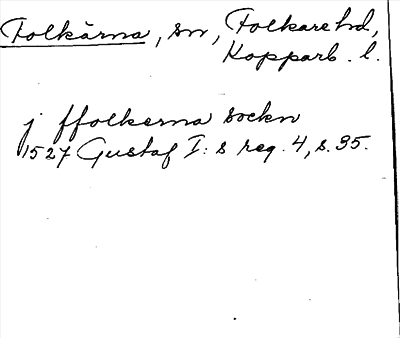 Folkärna, sn, Folkare hd,
Kopparb. l.
j ffolkerna sockn
1527 Gustaf I:s reg. 4, s. 35.